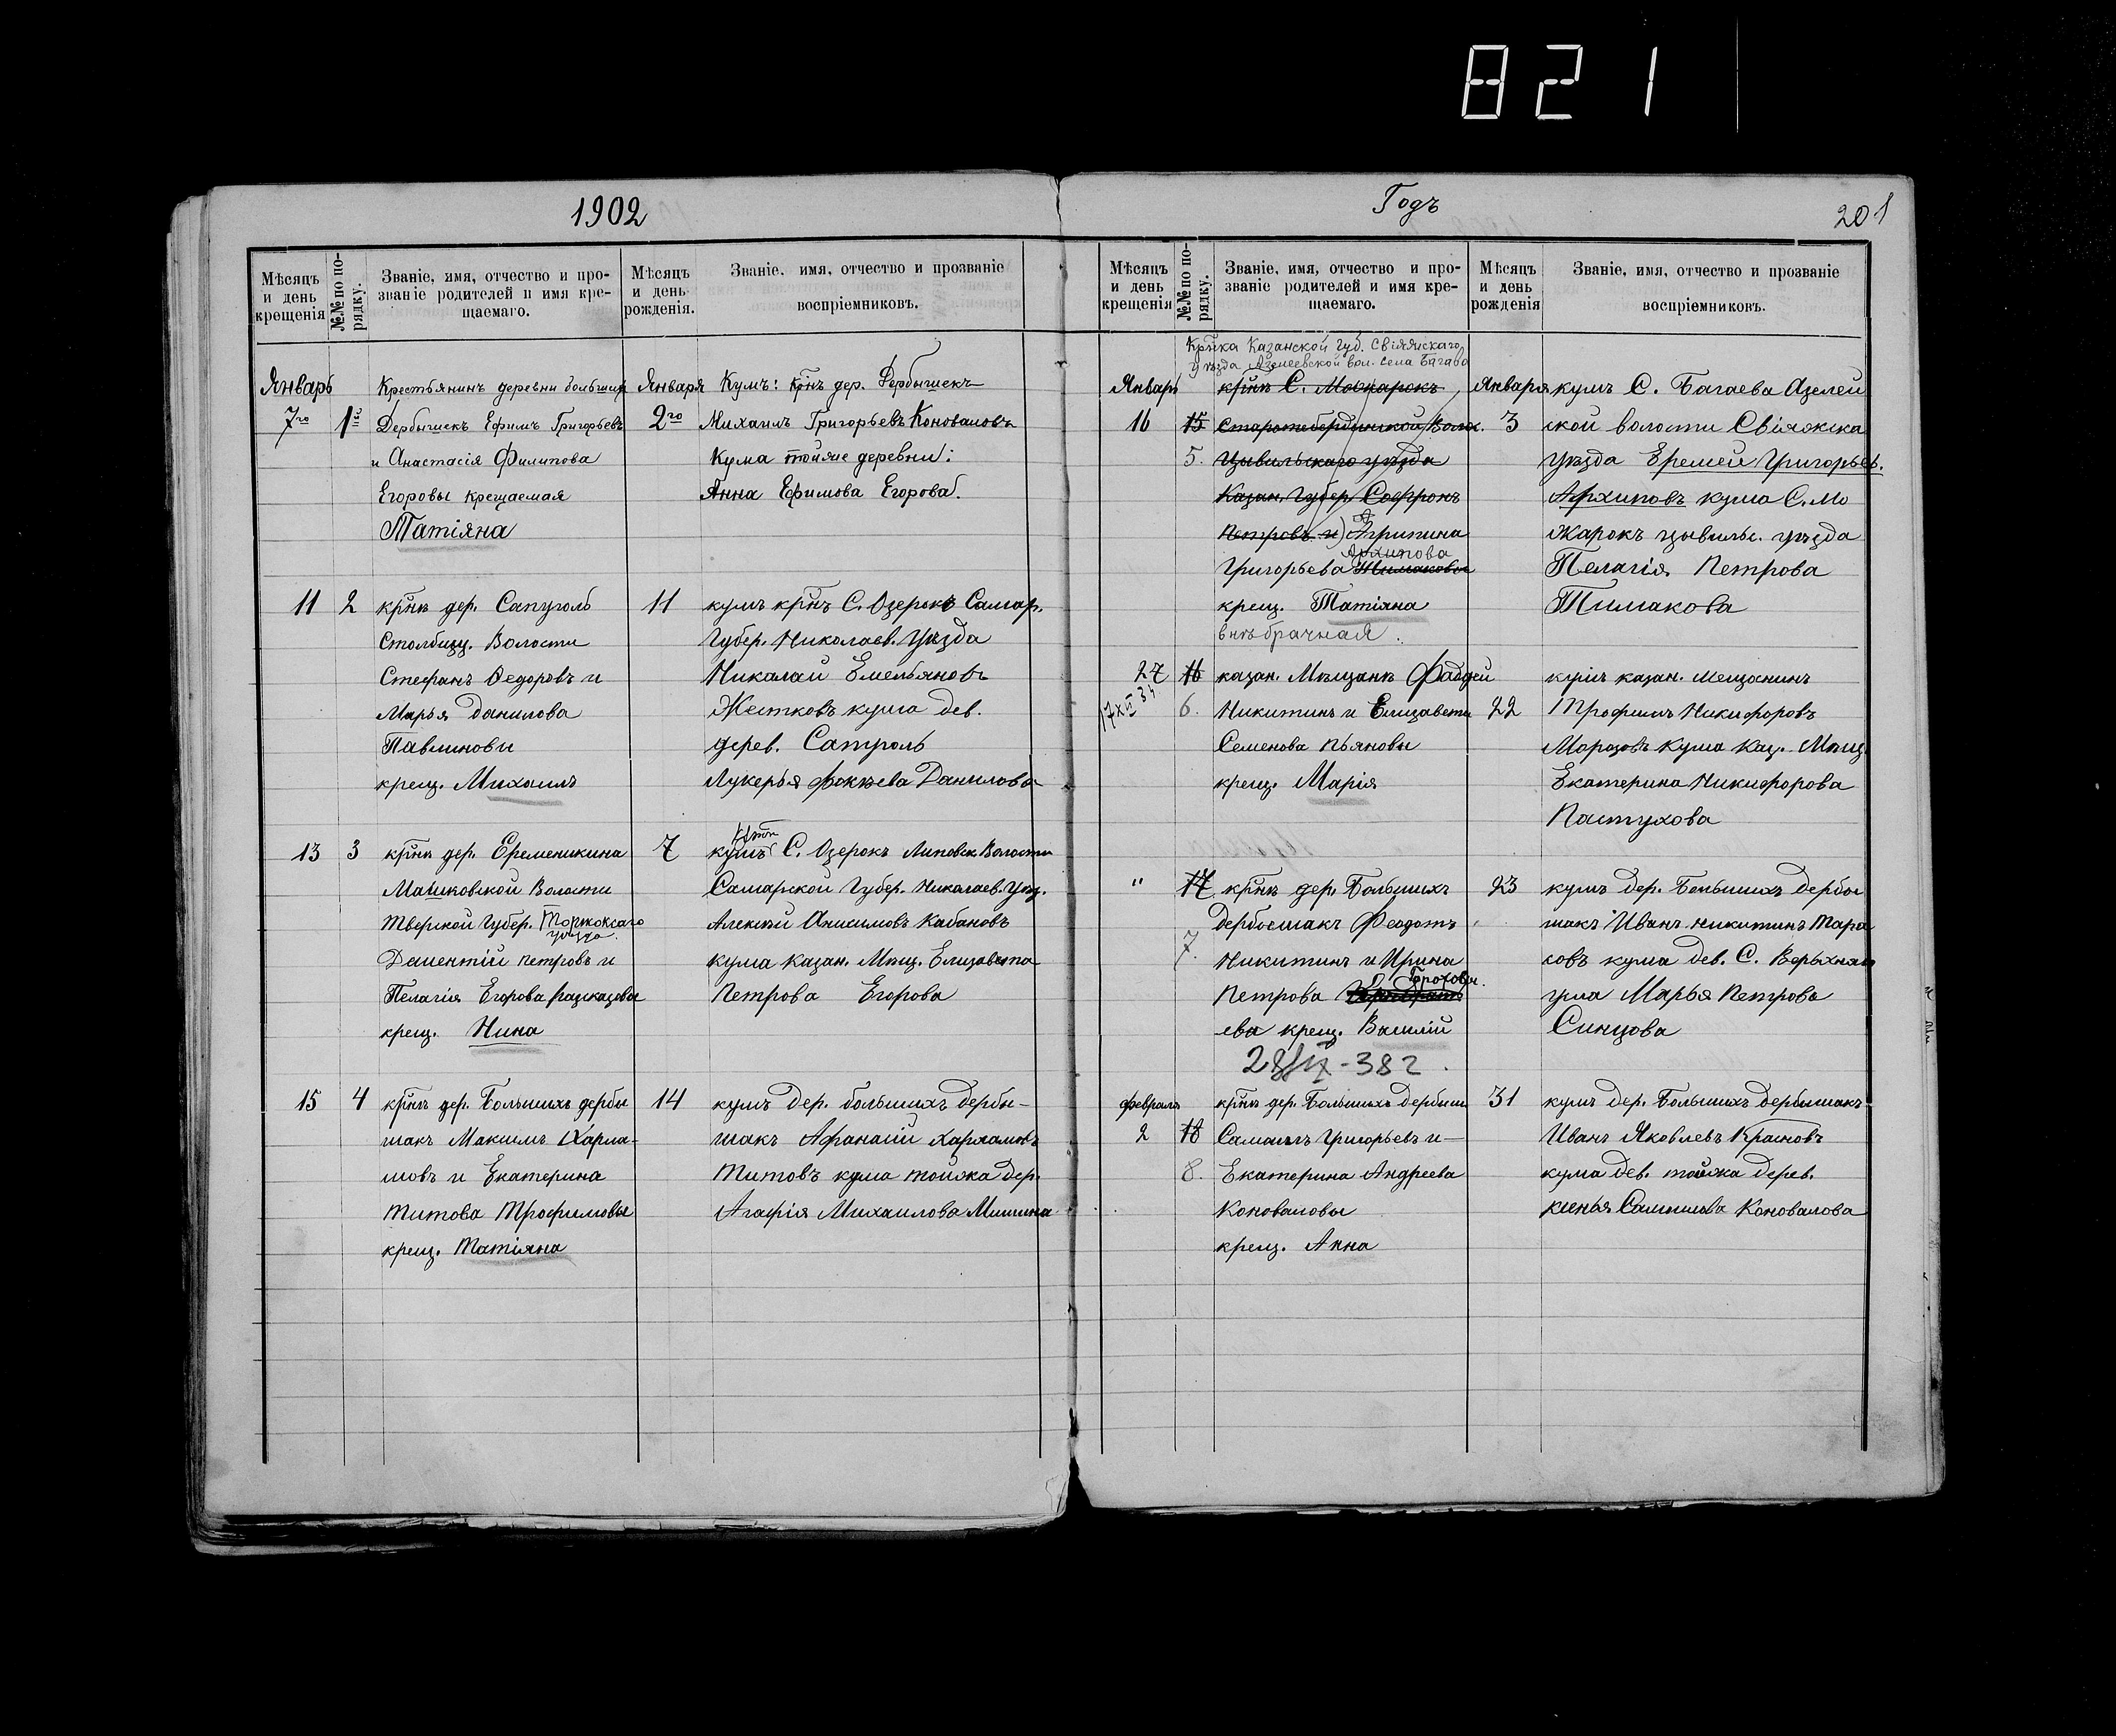 821
1902
Годъ
201
Мѣсяцъ и день крещенія
№№ по порядку.
Званіе, имя, отчество и прозваніе родителей и имя крещаемаго.
Мѣсяцъ и день рожденія.
Званіе, имя, отчество и прозваніе воспріемниковъ.
Январь
7го
1ый
Крестьянинъ деревни большихъ
Дербышекъ Ефимъ Григорьевъ
и Анастасія Филипова
Егоровы крещаемая
Татіяна
Января
2го
Кумъ: крнъ дер. Дербышекъ
Михаилъ Григорьевъ Коноваловъ
Кума тойже деревни:
Анна Ефимова Егорова.
11
2
крнъ дер. Сапуголь
Столбищ. Волости
Стефанъ Ѳедоровъ и
Марья Данилова
Павлиновы
крещ. Михаилъ
11
кумъ крнъ С. Озерокъ Самар.
Губер. Николаев. Уѣзда
Николай Емельяновъ
Жестковъ кума дев.
дерев. Сапуголь
Лукерья Фокѣева Данилова
13
3
крнъ дер. Еременикина
Машковской Волости
Тверской Губер. Торжокскаго
уѣзда.
Дементій Петровъ и
Пелагія Егорова Разсказовы
крещ. Нина
7
кумъ С. Озерокъ Липовск. Волости
Самарской Губер. Николаев. Уѣз.
Алексѣй Анисимовъ Кабановъ
кума казан. Мѣщ. Елизавета
Петрова Егорова
15
4
крнъ дер. Большихъ дербы
шакъ Максимъ Харла-
мовъ и Екатерина
Титова Трофимовы
крещ. Татіяна
14
кумъ дер. большихъ дербы-
шакъ Афанасій Харламовъ
Титовъ кума тойжа дер.
Агафія Михаилова Мишина
Мѣсяцъ и день крещенія
№№ по порядку.
Званіе, имя, отчество и прозваніе родителей и имя крещаемаго.
Мѣсяцъ и день рожденія
Званіе, имя, отчество и прозваніе воспріемниковъ.
Крнка Казанской Губ. Свіяжскаго
уѣзда Азелеевской вол. села Багаева
Январь
16
15
5.
крнъ С. Можарокъ
Старотебердинской Волос.
Цывильскаго уѣзда
Казан. Губер. Софронъ
Петровъ и) Агрипина
Архипова
Григорьева Тимаковы
крещ. Татіяна
внѣбрачная.
Января
3
кумъ С. Багаева Азелей
ской волости Свіяжска
уѣзда Еремей Григорьев.
Архиповъ кума С. Мо
жарокъ цывильс. уѣзда
Пелагія Петрова
Тимакова
27
16
17 XII 34
6.
казан. Мѣщанъ Фаддей
Никитинъ и Елизавета
Семенова Пьяновы
крещ. Марія
22
кумъ казан. мещанинъ
Трофимъ Никифоровъ
Морозовъ кума каз. Мѣщ.
Екатерина Никифорова
Пастухова
"
17
7.
крнъ дер. Большихъ
дербышакъ Феодотъ
Никитинъ и Ирина
Гороховы.
Петрова
ева крещ. Василій
28/IX-38 г.
23
кумъ дер. Большихъ дербы
шакъ Иванъ Никитинъ Тара
совъ кума дев. С. Верхняго
Марья Петрова
Синцова
Февраля
2
18
8.
крнъ дер. Большихъ Дербыш
Самоилъ Григорьевъ и-
Екатерина Андреева
Коноваловы
крещ. Анна
31
кумъ дер. Большихъ дербышакъ
Иванъ Яковлевъ Красновъ
кума дев. тойжа дерев.
ксенья Самоилова Коновалова